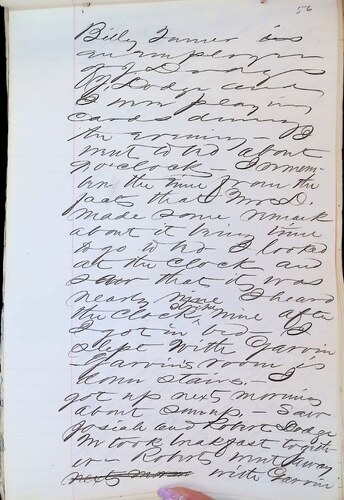 56
Billy Turner is
an employee
of J Dodge
Dodge and
I were playing
cards during
the evening – I
went to bed about
9 o'clock – I remem-
ber the time from the
fact that Mrs D.
made some remark
about it being time
to go to bed I looked
at the clock and
saw that it was
nearly nine I heard
the clock strike nine after
I got in bed – I
slept with Garvin
– Garvin's room is
down stairs. – I
got up next morning
about sunup. – Saw
Josiah and Robert Dodge
We took breakfast togeth-
er – Robert went away
next morn with Garvin